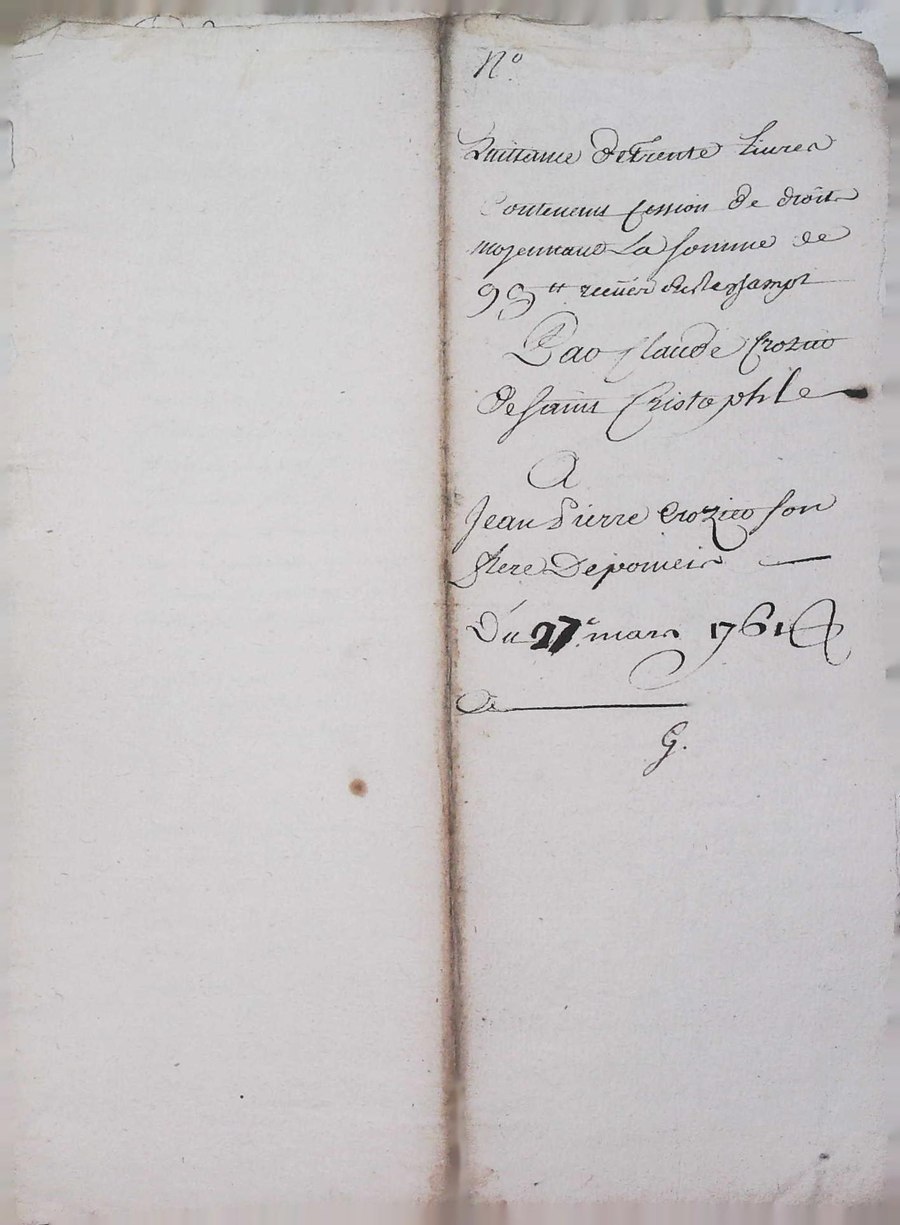 N.o
Quittance de trente Livres
Contenent Cession de droits
moyennant La somme de
99 tt
Par Claude Crozier
de saint Cristophle
A
Jean Pierre Crozier son
frere De pomeis
Du 27e mars 1761
de
G.